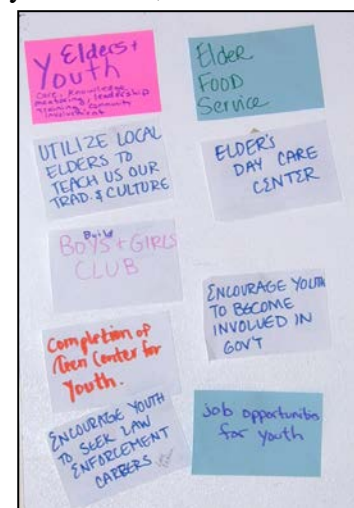 Elders +
Youth
Care, Knowledge,
mentoring, leadership
training, community
involvement
UTILIZE LOCAL
ELDERS TO
TEACH US OUR
TRAD. & CULTURE
Build
BOYS + GIRLS
CLUB
Completion of
Teen Center for
Youth.
ENCOURAGE YOUTH
TO SEEK LAW
ENFORCEMENT
CAREERS
Elder
FOOD
Service
ELDER'S
DAY CARE
CENTER
ENCOURAGE YOUTH
TO BECOME
INVOLVED IN
GOV'T
Job opportunities
for youth